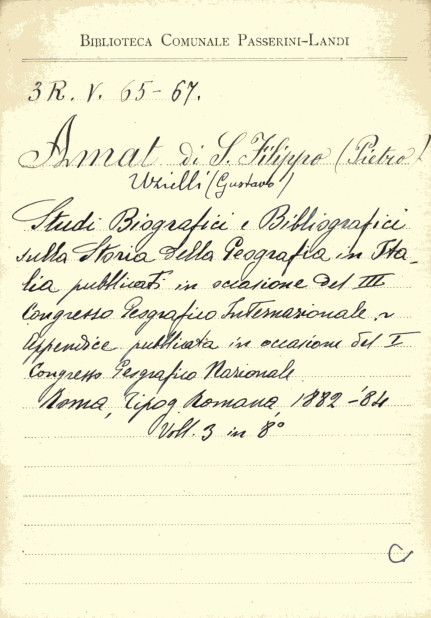 BIBLIOTECA COMUNALE PASSERINI-LANDI
3R. V. 65-67.
Amat di S. Filippo (Pietro)
Uzielli (Gustavo)
Studi Biografici e Bibliografici
sulla Storia della Geografia in Ita-
lia pubblicati in occasione del III
Congresso Geografico Internazionale ~
Appendice pubblicata in occasione del I
Congresso Geografico Nazionale
Roma, Tipog. Romana, 1882-'84
Voll. 3 in 8°
C